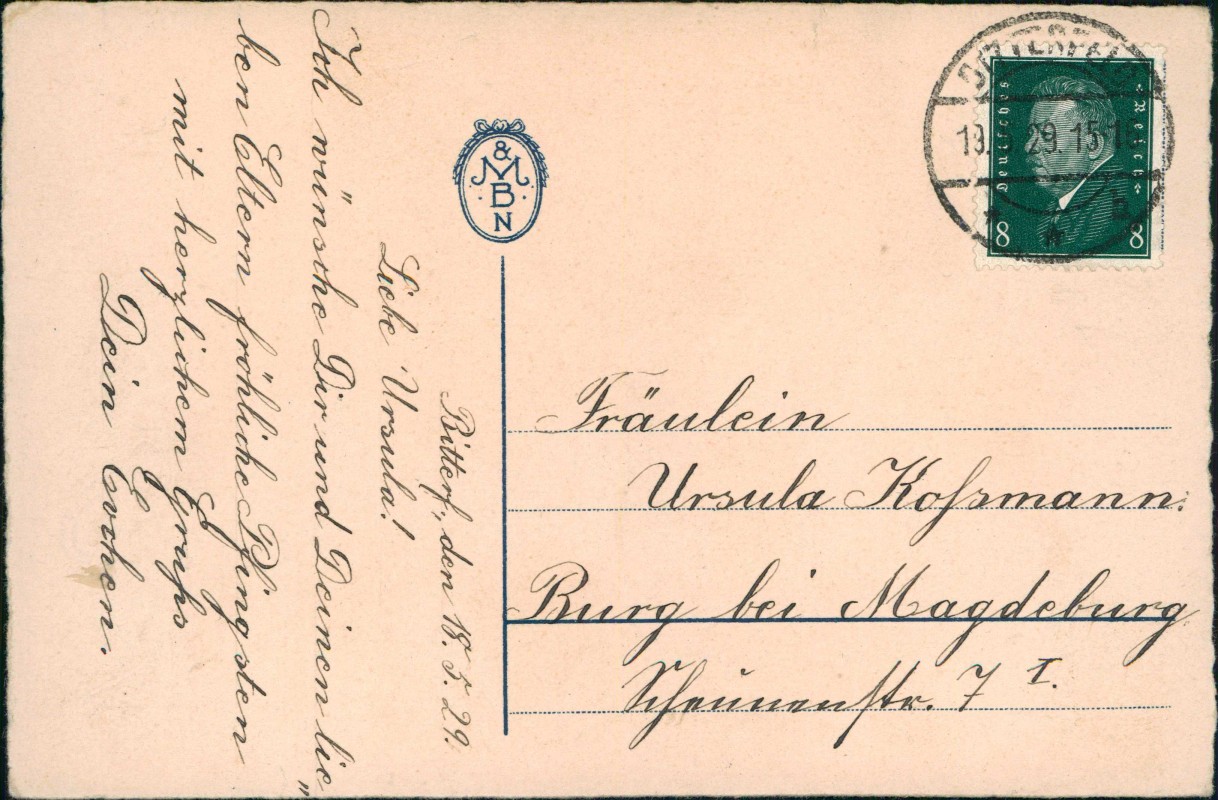 Bitterf., den 18. 5. 29.
Liebe Ursula!
Ich wünsche Dir und Deinen lie„
ben Eltern fröhliche Pfingsten
mit herzlichem Gruss
Dein Evchen.
& M B N
Deutsches Reich
8 8
19.5.29. 15-16
B
Fräulein
Ursula Koſsmann.
Burg bei Magdeburg
Scheunenstr. 7 I.